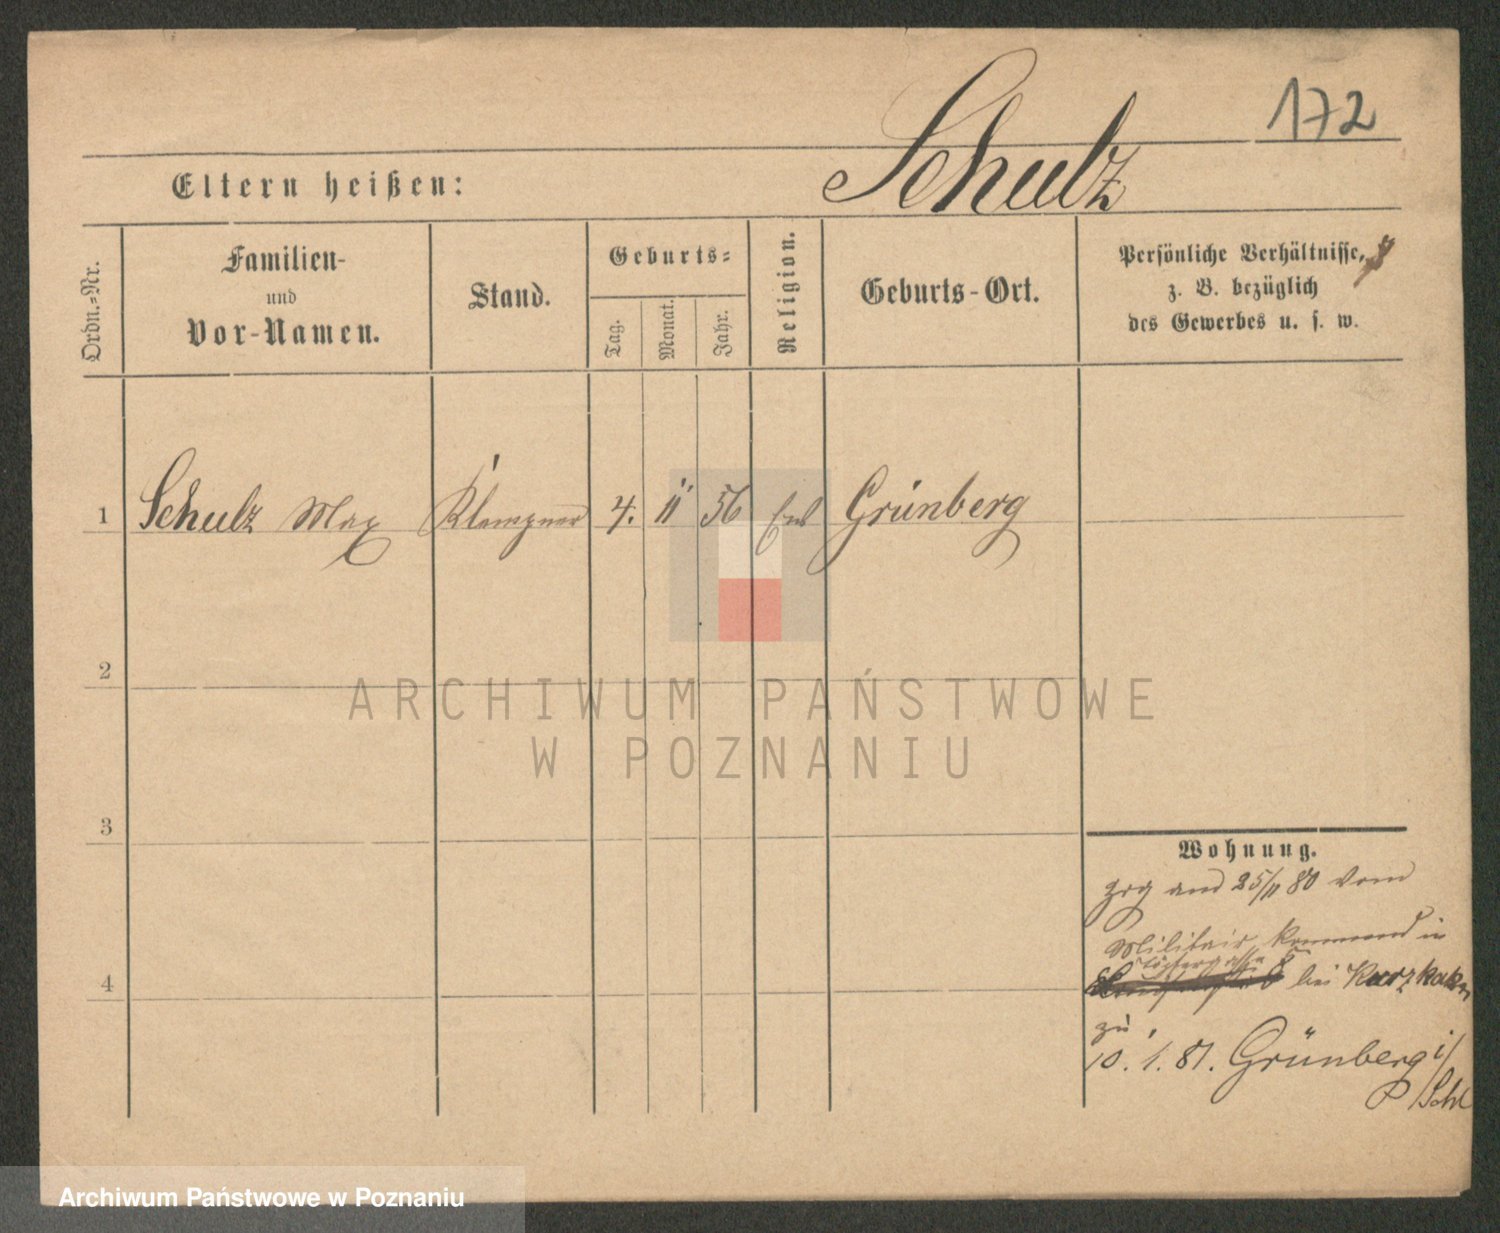 172
Schulz
Eltern heißen:
Ordn.-Nr.
Familien-
und
Vor-Namen.
Stand.
Geburts-
Tag.
Monat.
Jahr.
Religion.
Geburts-Ort.
Persönliche Verhältnisse,
z. B. bezüglich
des Gewerbes u. s. w.
1 Schulz Max Klempner 4. 11 56 Grünberg
2
3
4
Wohnung.
25/11 80 vom
Militair kommend in
Töpfergasse 8 bei
zu
10. 1. 81. Grünberg i/
Schl
ARCHIWUM PAŃSTWOWE
W POZNANIU
Archiwum Państwowe w Poznaniu